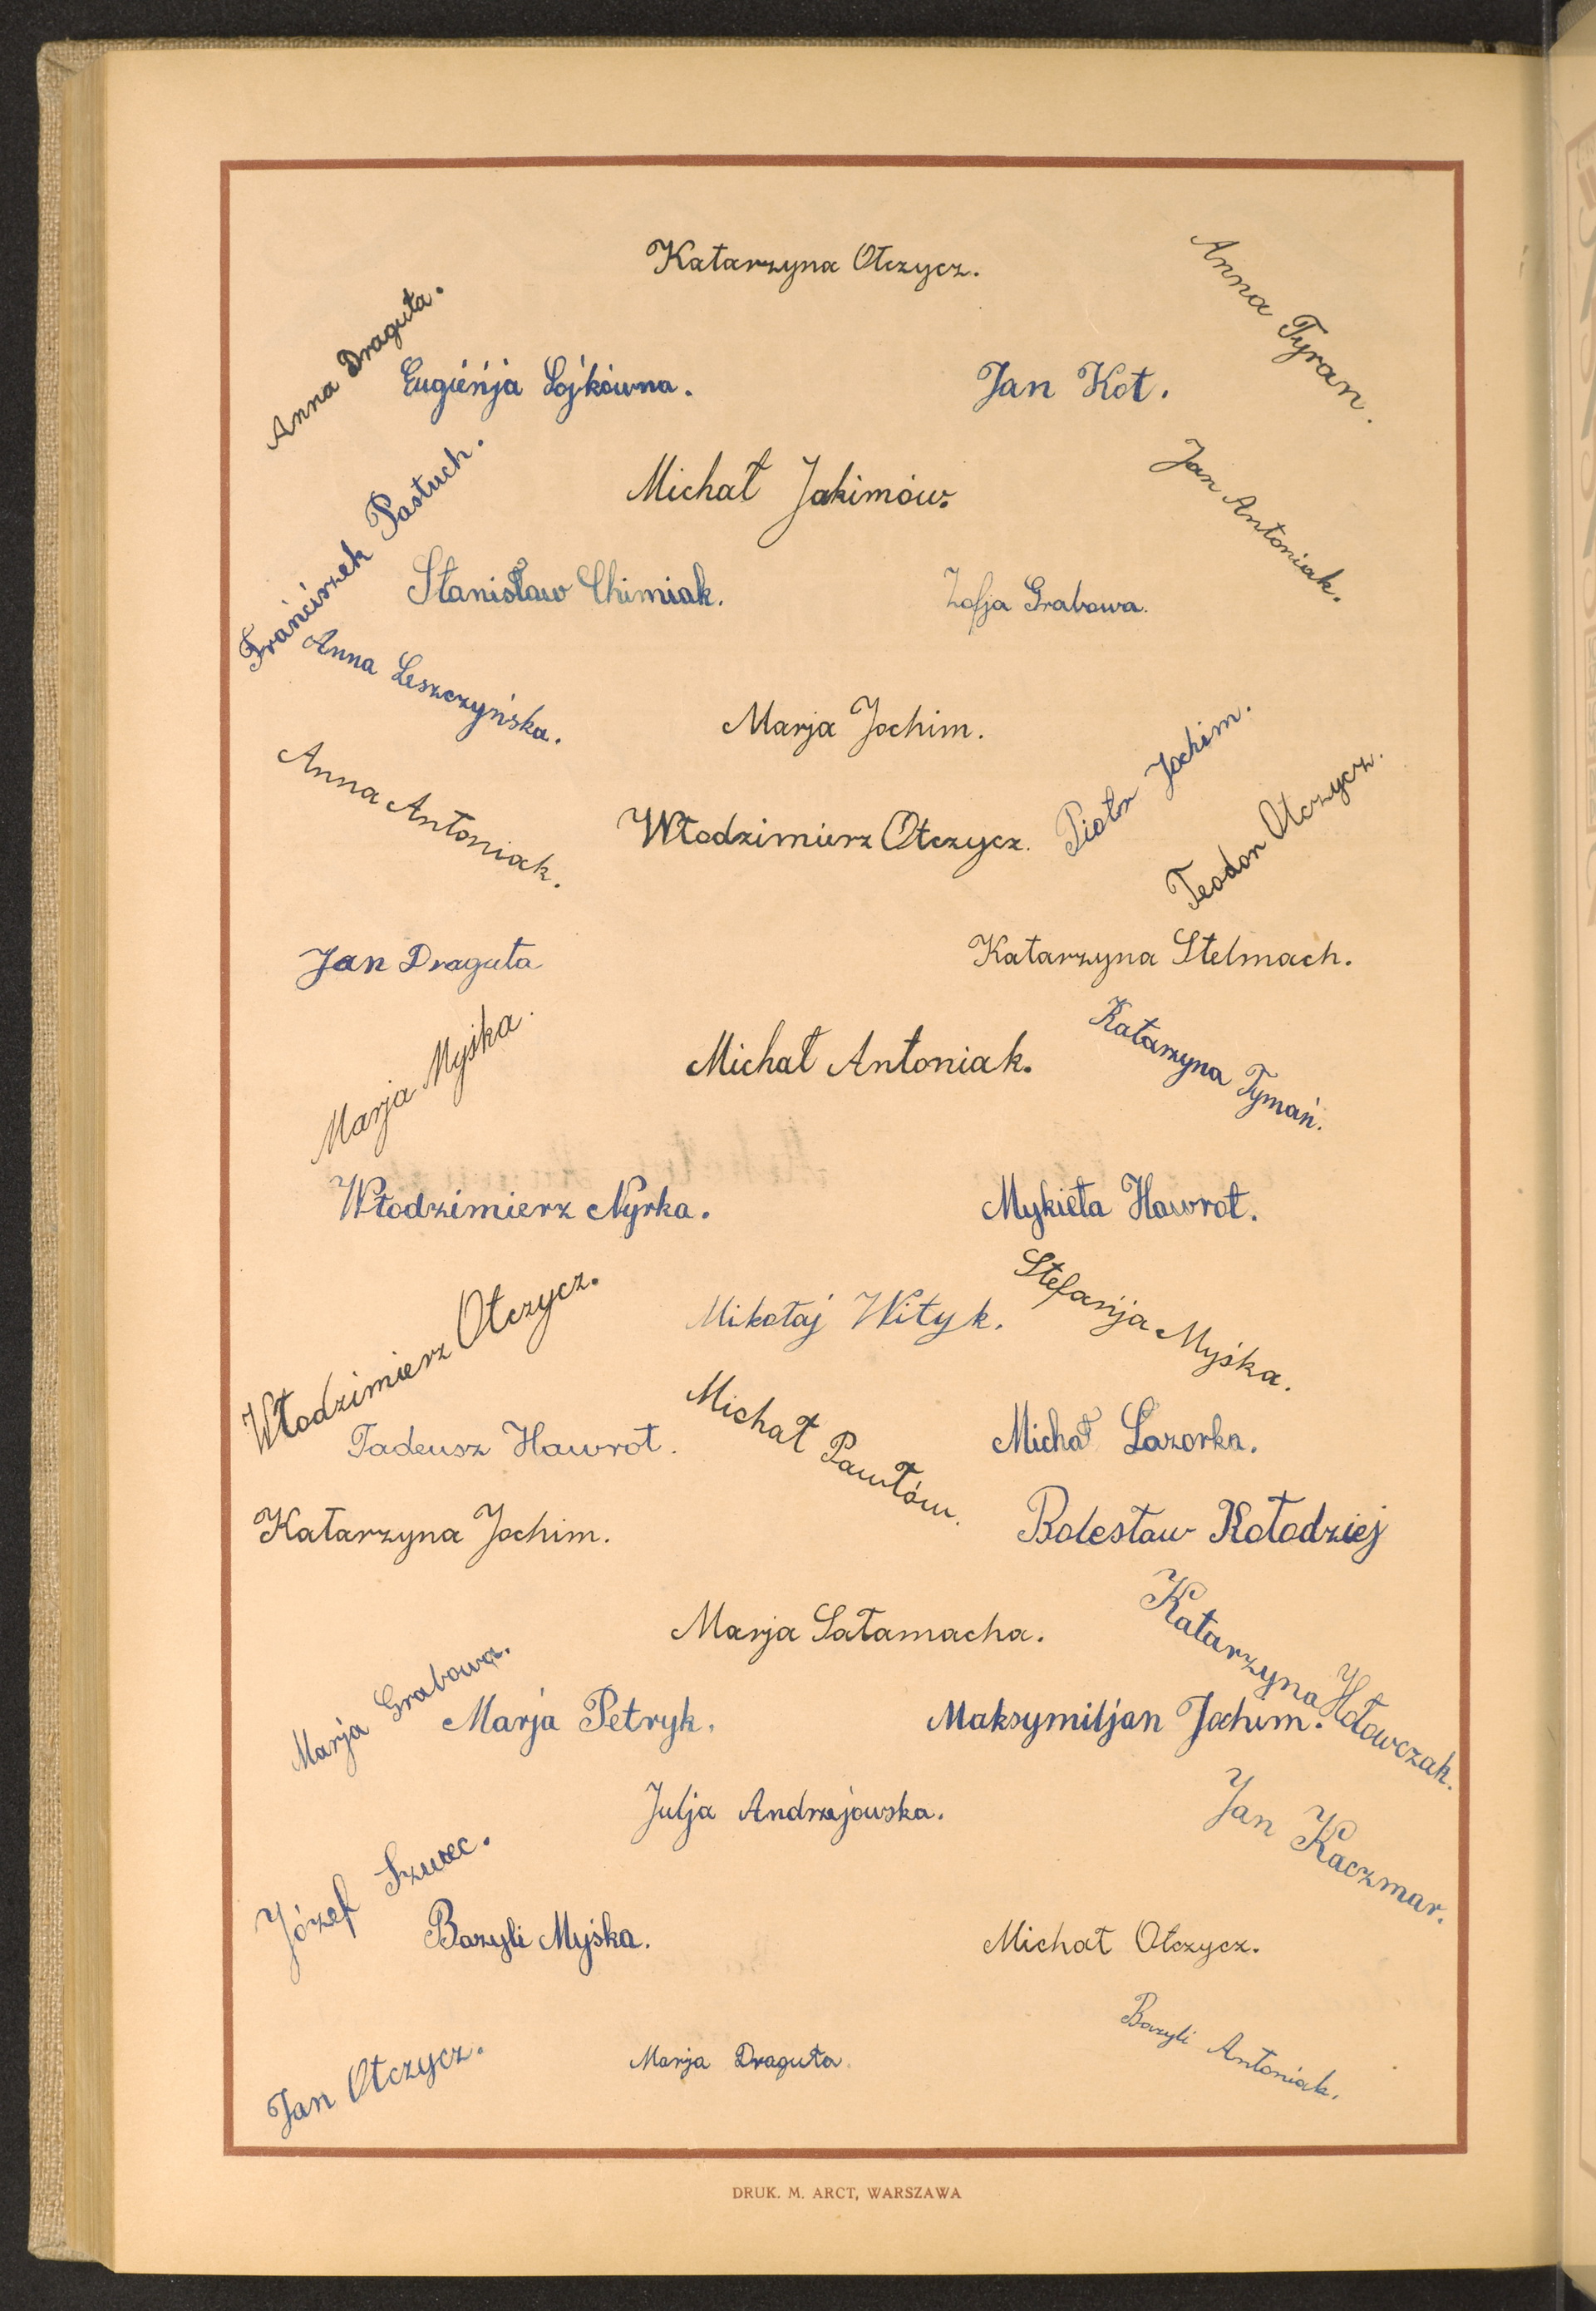 Katarzyna Otczycz.
Anna Tyran.
Anna Draguta.
Eugieńja Łojkówna.
Jan Kot.
Michał Jakimów.
Jan Antoniak.
Frańciszek Pastuch.
Stanisław Chimiak.
Zofja Grabowa.
Anna Leszczyńska.
Marja Jochim.
Piotr Jochim.
Anna Antoniak.
Włodzimierz Otczycz.
Teodor Otczycz.
Jan Draguta
Katarzyna Stelmach.
Marja Myśka.
Michał Antoniak.
Katarzyna Tymań.
Włodzimierz Nyrka.
Mykieta Hawrot.
Włodzimierz Otczycz.
Mikołaj Wityk.
Stefańja Myśka.
Tadeusz Hawrot.
Michał Pawłów.
Michał Lazorka.
Katarzyna Jochim.
Bolesław Kołodziej
Marja Sałamacha.
Katarzyna Hołowczak.
Marja Grabowa.
Marja Petryk.
Maksymiljan Jochim.
Julja Andrzejowska.
Jan Kaczmar.
Józef Szwec.
Bazyli Myśka.
Michał Otczycz.
Bazyli Antoniak.
Jan Otczycz.
Marja Draguta.
DRUK. M. ARCT, WARSZAWA